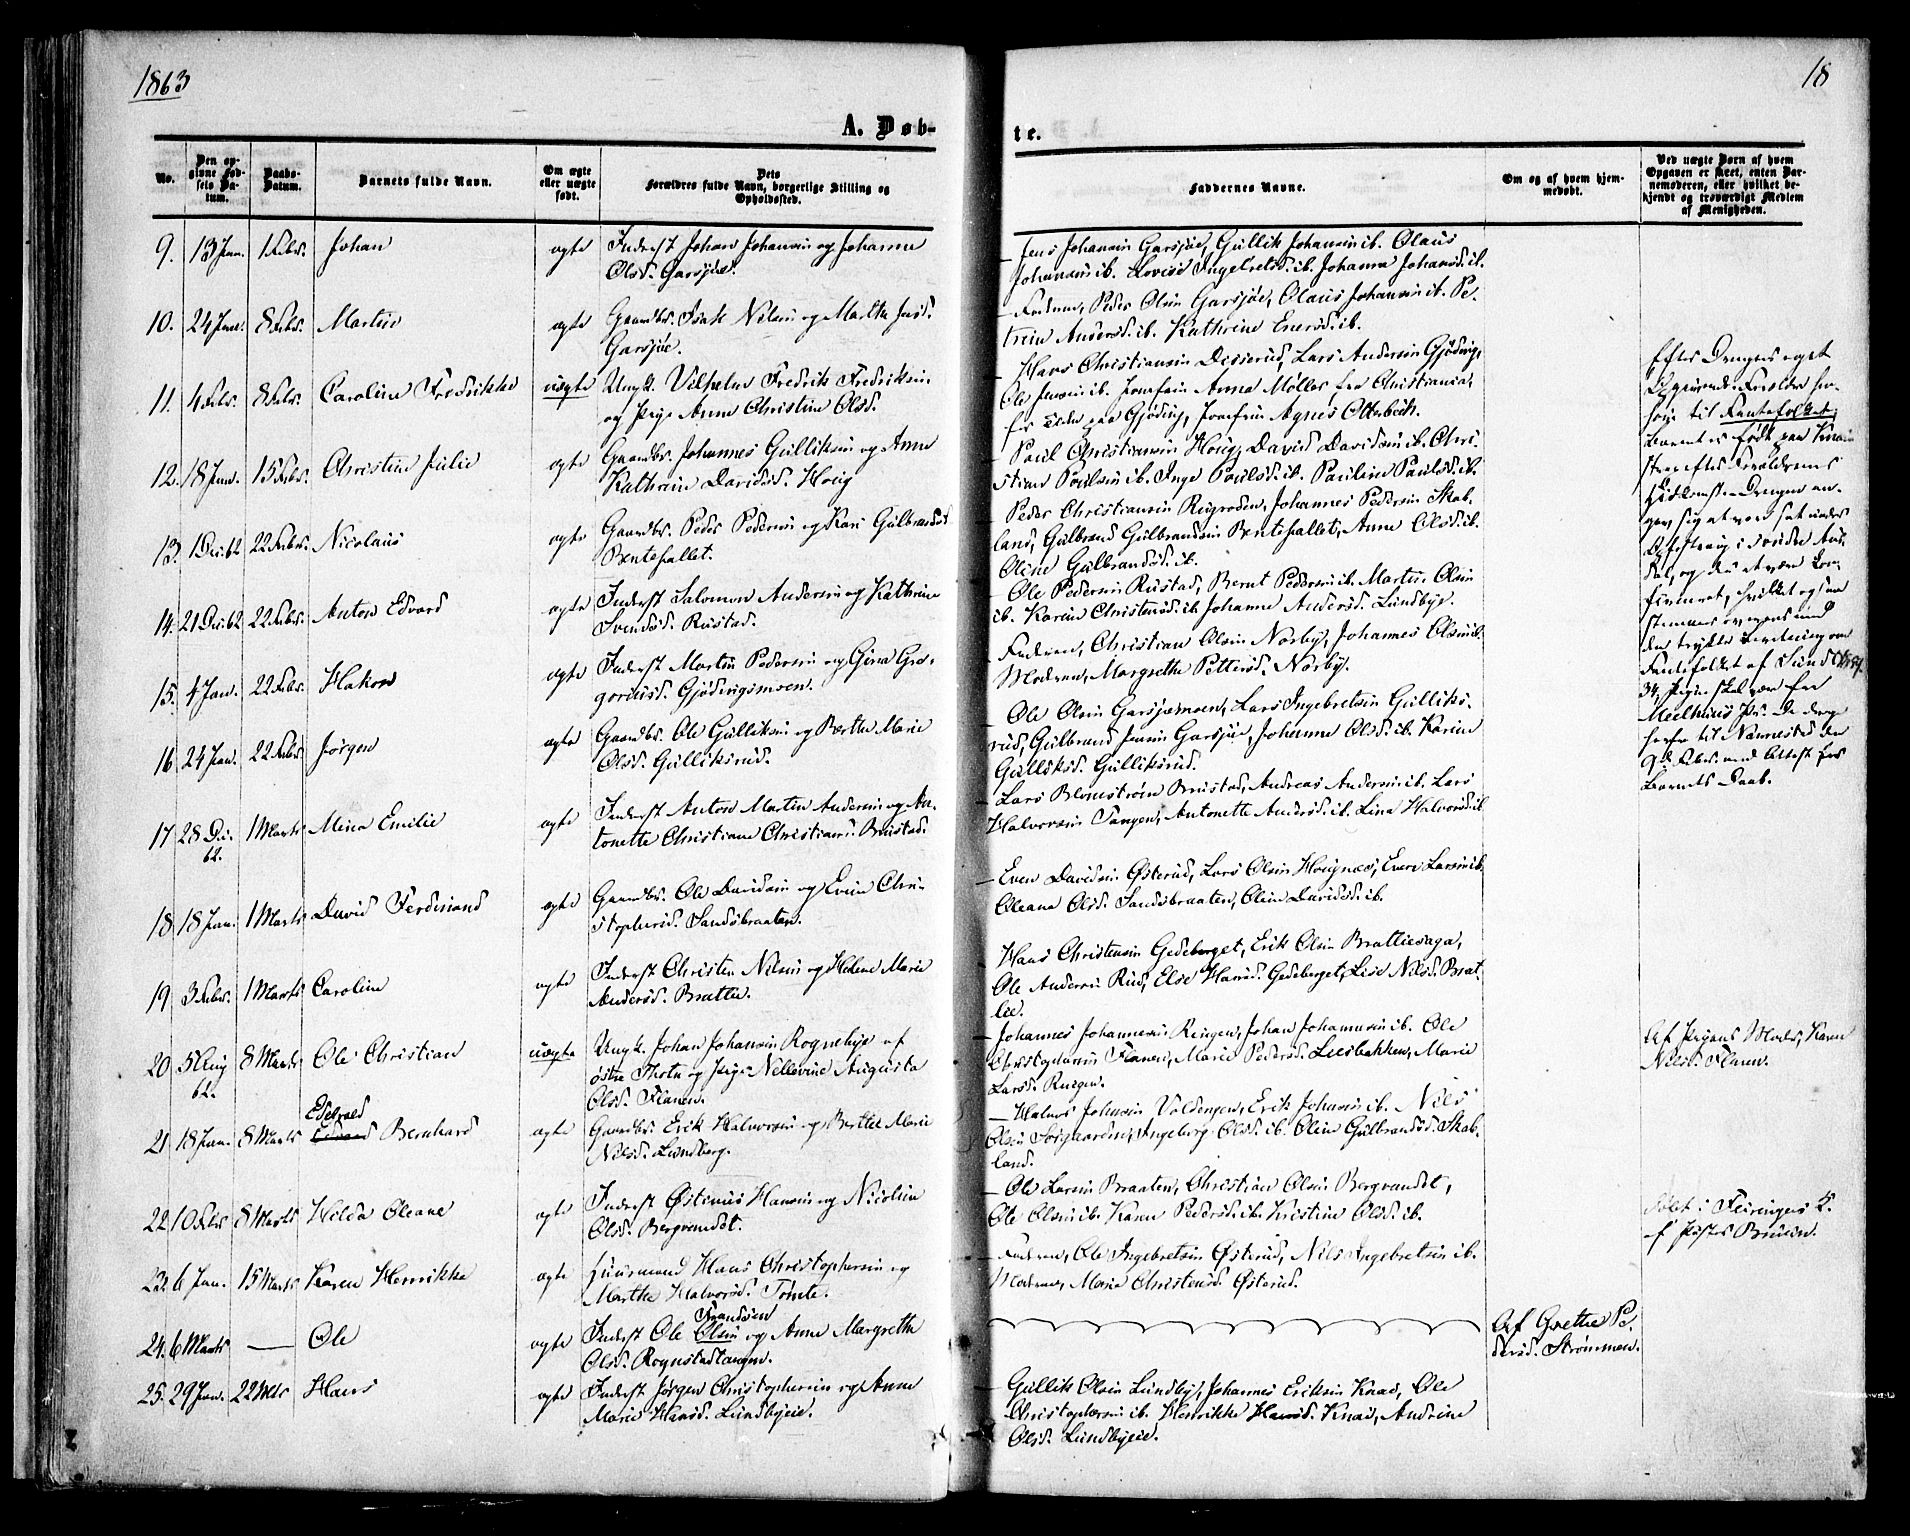 1863
18
A. Døb-
te.
No.
Den op-
givne Fød-
sels Da-
tum.
Daabs-
Datum.
Barnets fulde Navn.
Om ægte
eller uægte
født.
Dets
Forældres fulde Navn, borgerlige Stilling og
Opholdssted.
Faddernes Navne.
Om og af hvem hjem-
medøbt.
Ved uægte Børn af hvem
Opgaven er skeet, enten Bar-
nemoderen, eller hvilket be-
kjendt og troværdigt Medlem
af Menigheden.
9. 13 Jan. 1 Febr. Johan ægte Inderst Johan Johansen og Johanne
Olsd. Garsjøe.
Jens Johansen Garsjøe, Gullik Johansen ib. Olaus
Johansen ib. Lovise Ingebretsd. ib. Johanne Johansd. ib.
10. 24 Janr. 8 Febr. Martin ægte Gaardbr. Isak Nilsen og Marthe Jensd.
Garsjøe.
Faderen, Peder Olsen Garsjøe, Olaus Johansen ib. Pe-
trine Andersd. ib. Kathrine Enersd. ib.
11. 4 Febr. 8 Febr. Caroline Fredrikke uægte Ungk. Vilhelm Fredrik Fredriksen
og Pige Anne Christine Olsd.
Hans Christiansen Disserud, Lars Andersen Gjødvig,
Ole Jensen ib. Jomfru Anna Møller fra Christiania,
for Tiden paa Gjødvig, Jomfru Agnes Otterbeck.
12. 18 Janr. 15 Febr. Christine Julie ægte Gaardbr. Johannes Gulliksen og Anne
Kathrine Davidsd. Houg
Paul Christiansen Houg, David Davidsen ib. Chri-
stian Poulsen ib. Inge Poulsd. ib. Pauline Paulsd. ib.
13. 1 Dec. 62 22 Febr. Nicolaus ægte Gaardbr. Peder Pedersen og Kari Gulbrandsd.
Bentefallet.
Peder Christiansen Rognoden, Johannes Pedersen Skab-
land, Gulbrand Gulbrandsen Bentefallet, Anne Olsd. ib.
Oline Gulbrandsd. ib.
14. 21 Dec. 62 22 Febr. Anton Edvard ægte Inderst Salomon Andersen og Kathrine
Svendsd. Rustad.
Ole Pedersen Rustad, Bernt Pedersen ib. Martin Olsen
ib. Karen Christensd. ib. Johanne Andersd. Lundbye.
15. 4 Jan. 22 Febr. Hakon ægte Inderst Martin Pedersen og Gina Gre-
goriusd. Gjødvigsmoen.
Faderen, Christian Olsen Norby, Johannes Olsen ib.
Moderen, Margrethe Pettersd. Norby.
16 24 Jan. 22 Febr. Jørgen ægte Gaardbr. Ole Gulliksen og Berthe Marie
Olsd. Gulliksrud.
Ole Olsen Garsjømoen, Lars Ingebretsen Gulliks-
rud, Gulbrand Jensen Garsjøe, Johanne Olsd. ib. Karine
Gulliksd. Gulliksrud.
17 28 Dec. 1 Marts Mina Emilie ægte Inderst Anton Martin Andersen og An-
62. tonette Christiane Christiansd. Brustad.
Lars Blomstrøm Brustad, Andreas Andersen ib. Lars
Halvorsen Tangen, Antonette Andersd. ib. Lina Halvorsd. ib.
18 18 Jan. 1 Marts David Ferdinand ægte Gaardbr. Ole Davidsen og Evine Chri-
stophersd. Sandsbraaten.
Even Davidsen Østerud, Lars Olsen Hougnæs, Even Larsen ib.
Oleana Olsd. Sandsbraaten, Oline Davidsd. ib.
19 3 Febr. 1 Marts Caroline ægte Inderst Christen Nilsen og Helene Marie
Andersd. Brattlie.
Hans Christensen Gedeberget, Erik Olsen Brattliesaga,
Ole Andersen Rud, Else Hansd. Gedeberget, Lise Nilsd. Brat-
lie.
20 5 Aug 8 Marts Ole Christian uægte Ungk. Johan Johansen Rognehje af
62. østre Thoten og Pige Nellevine Augusta
Olsd. Flanen.
Johannes Johannesen Ringen, Johan Johannesen ib. Ole
Christophersen Flanen, Marie Pedersd. Liesbakken, Marie
Larsd. Ringen.
Af Pigens Moder, Karen
Nilsd. Flanen.
Edevald
21 18 Jan. 8 Marts Edvard Bernhard ægte Gaardbr. Erik Halvorsen og Berthe Marie
Nilsd. Lundberg.
Halvor Johansen Voldengen, Erik Johansen ib. Nils
Olsen Sørgaarden, Ingeborg Olsd. ib. Oline Gulbrandsd. Skab-
land.
22 10 Febr 8 Marts Hilda Oleane ægte Inderst Østenius Hansen og Nicoline
Olsd. Bergvandet.
Ole Larsen Braaten, Christian Olsen Bergvandet,
Ole Olsen ib. Karen Pedersd. ib. Kristine Olsd. ib.
Døbt i Feiringens K.
af Pastor Bruun.
23. 6 Jan. 15 Marts Karen Henrikke ægte Huusmand Hans Christophersen og
Marthe Halvorsd. Tømte.
Faderen, Ole Ingebretsen Østerud, Nils Ingebretsen ib.
Moderen, Maria Christensd. Østerud.
24. 6 Marts — Ole ægte Inderst Ole Olsen og Anne Margrethe
Frandsen
Olsd. Rognstadtangen.
Af Grethe Pe-
dersd. Strømmen.
25. 29 Jan. 22 Mts Hans ægte Inderst Jørgen Christophersen og Anne
Marie Hansd. Lundbyeie.
Gullik Olsen Lundby, Johannes Eriksen Knai, Ole
Christophersen ib. Henrikke Hansd. Knai, Andrine
Olsd. Lundbyeie.
Efter Drengens eget
Opgivende Forældre hen-
høre til Fantefolket;
Barnet er født paa
efter Forældrenes
Drengen an-
gav sig at være sat under
Opfostring i Søndre Aur-
dal, og der at være
hvilket ogsaa
stemmer overens med
den trykte Beretning om
Fantefolket af Sundt
34. Pigen skal være fra
Meelhuus Pr. De drog
herfra til Nannestad den
9de Febr. med Attest for
Barnets Daab.